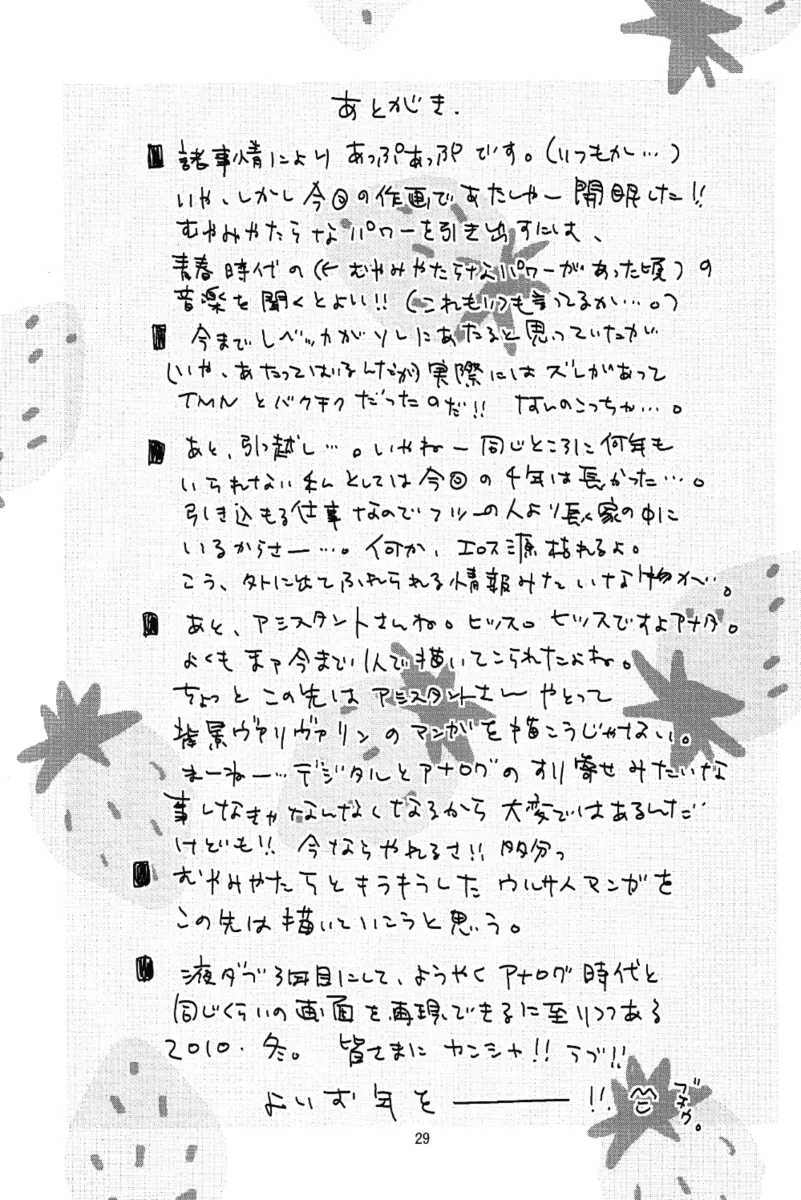 あとがき.
諸事情により あっぷあっぷです。(いつもか…)
いや、しかし今回の作画であたしゃー開眼した!!
むやみやたらなパワーを引き出すには、
青春時代の(←むやみやたらなパワーがあった頃)の
音楽を聞くとよい!!(これもいつも言ってるか…。)
今までレベッカがソレにあたると思っていたが
(いや、あたってはいるんだが)実際にはズレがあって
TMNとバクチクだったのだ!! なんのこっちゃ…。
あと、引越し…。いやねー同じところに何年も
いられない私としては今回の4年は長かった…。
引き込もる仕事なのでフツーの人より長く家の中に
いるからさー…。何か、エロス源枯れるよ。
こう、外に出てふれられる情報みたいな物が…。
あと、アシスタントさんね。ヒッス。ヒッスですよアナタ。
よくもまァ今まで1人で描いてこられたよね。
ちょっとこの先はアシスタントさんやとって
背景ヴァリヴァリンのマンガを描こうじゃない。
まーねー…デジタルとアナログのすり寄せみたいな
事しなきゃなんなくなるから大変ではあるんだ
けども!! 今ならやれるさ!! 多分っ
むやみやたらとキラキラしたウルサイマンガを
この先は描いていこうと思う。
液タブ3回目にして、ようやくアナログ時代と
同じくらいの画面を再現できるに至りつつある
2010.冬。 皆さまにカンシャ!! ラブ!!
よいお気を――――!!
29